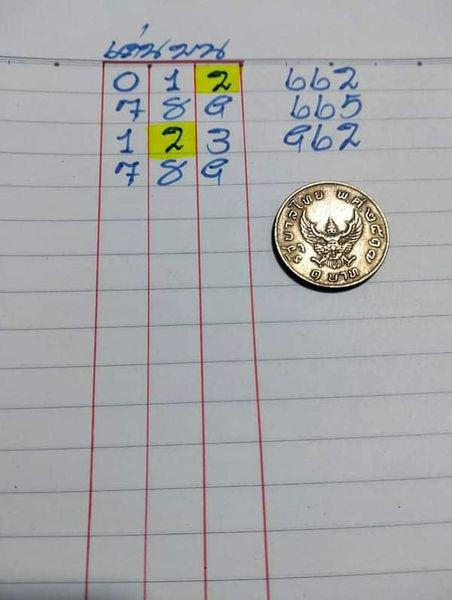 เด่นบน
0 1 2 662
7 8 9 665
1 2 3 962
7 8 9
รัฐบาลไทย พ.ศ.๒๕๑๗
๑ บาท